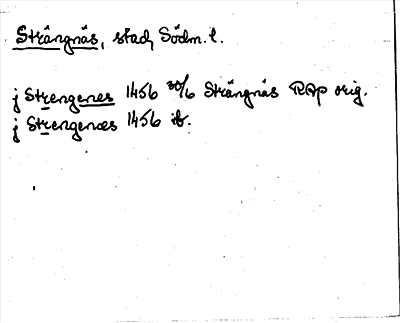 Strängnäs, stad, Södm. l.
j Strengenes 1456 30/6 Strängnäs RAp orig.
j Strengenæs 1456 ib.